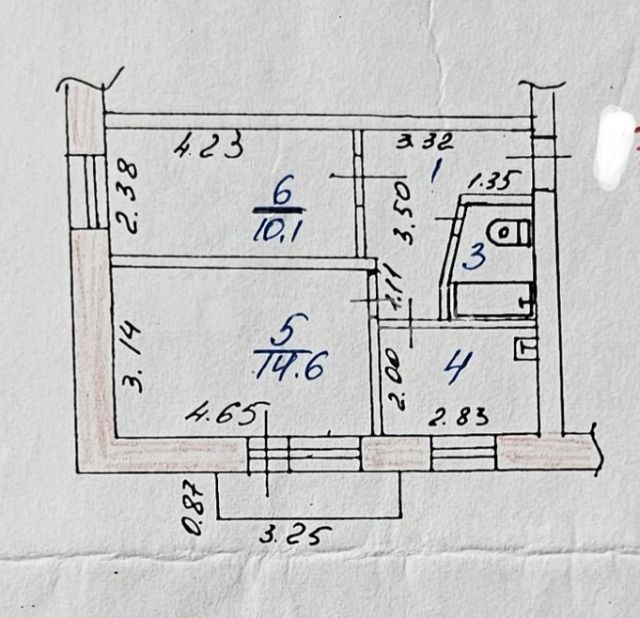 4.23
3.32
1
2.38
6
10.1
3.50
1.35
3
1.11
3.14
5
14.6
2.00
4
T
4.65
2.83
0.87
3.25